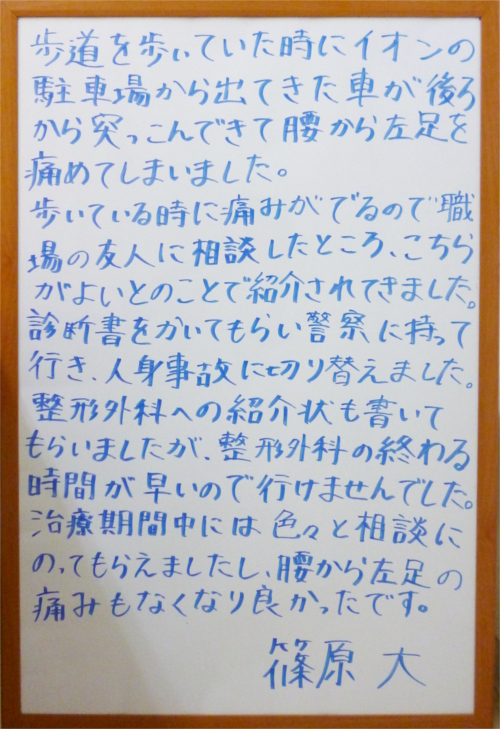 歩道を歩いていた時にイオンの
駐車場から出てきた車が後ろ
から突っこんできて腰から左足を
痛めてしまいました。
歩いている時に痛みがでるので職
場の友人に相談したところ、こちら
がよいとのことで紹介されてきました。
診断書をかいてもらい警察に持って
行き、人身事故に切り替えました。
整形外科への紹介状も書いて
もらいましたが、整形外科の終わる
時間が早いので行けませんでした。
治療期間中には色々と相談に
のってもらえましたし、腰から左足の
痛みもなくなり良かったです。
篠原 大